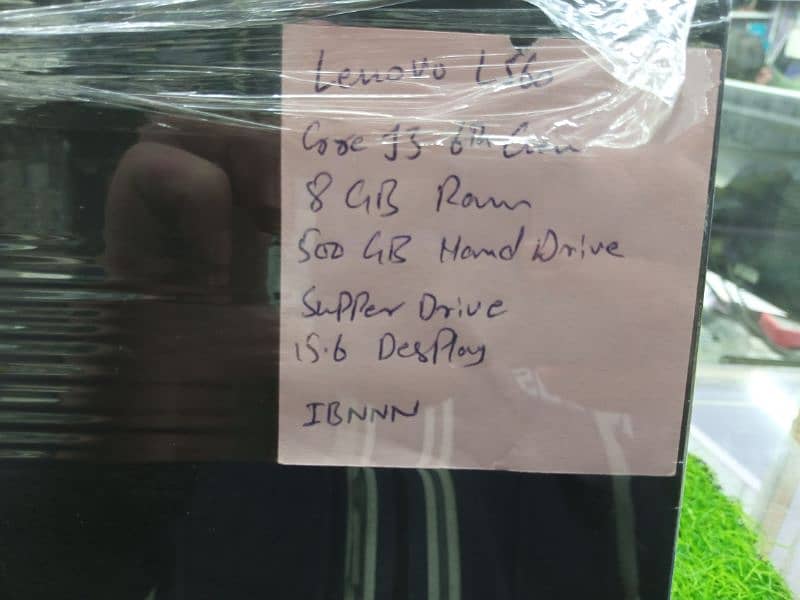 Lenovo L560
Core I3 6th Gen
8 GB Ram
500 GB Hand Drive
Supper Drive
15.6 Desplay
IBNNN